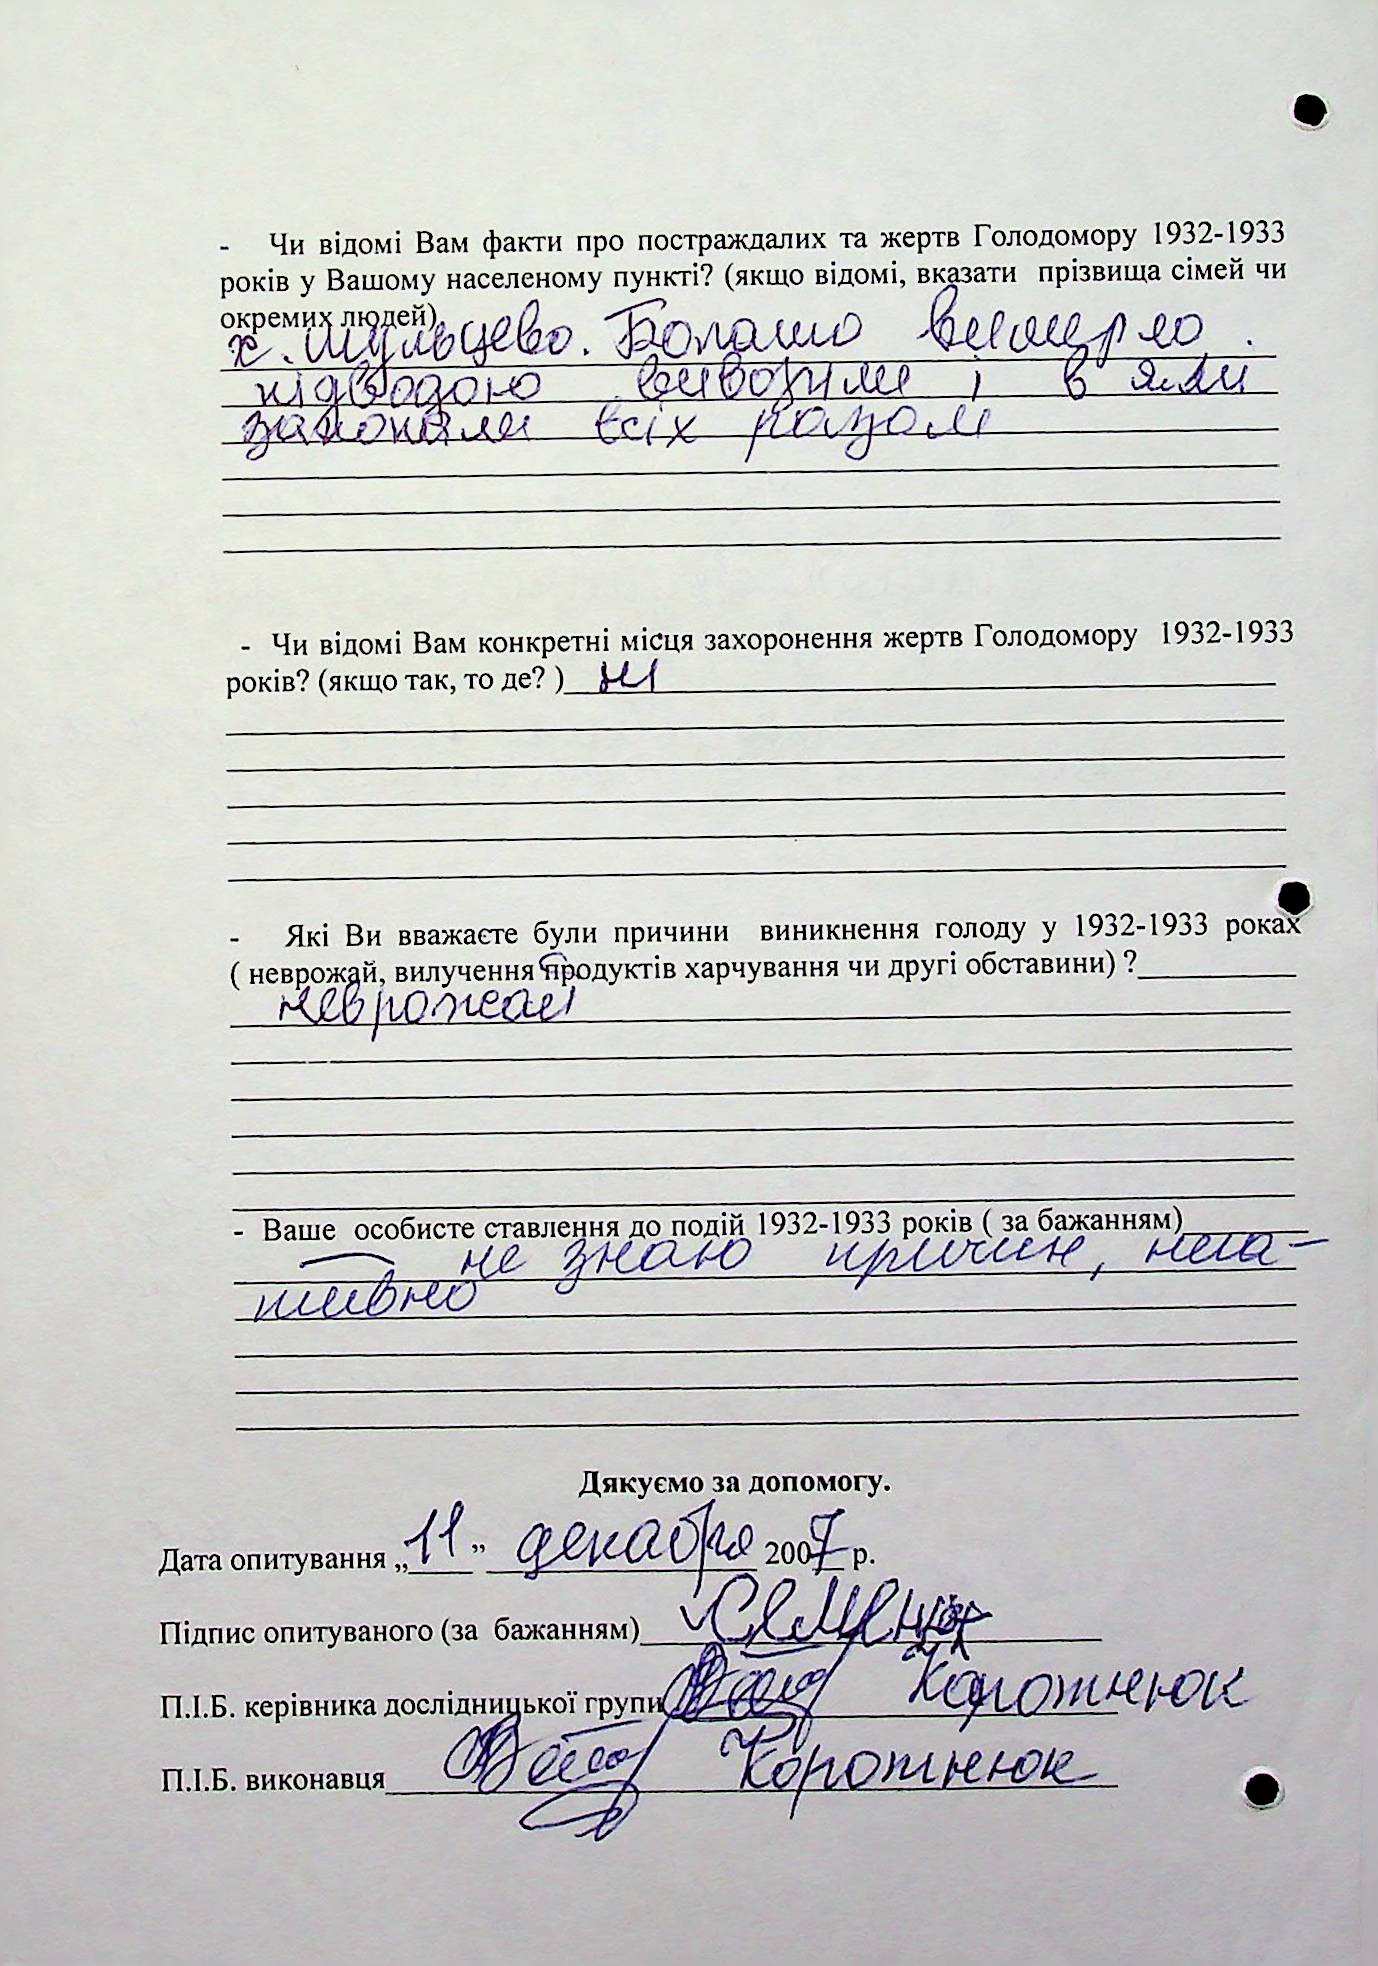 - Чи відомі Вам факти про постраждалих та жертв Голодомору 1932-1933
років у Вашому населеному пункті? (якщо відомі, вказати прізвища сімей чи
окремих людей)
х. Шульцево. Богато вимерло.
підводою вивозили і в ями
закопали всіх разом
- Чи відомі Вам конкретні місця захоронення жертв Голодомору 1932-1933
років? (якщо так, то де? ) ні
- Які Ви вважаєте були причини виникнення голоду у 1932-1933 роках
( неврожай, вилучення продуктів харчування чи другі обставини) ?
неврожай
- Ваше особисте ставлення до подій 1932-1933 років ( за бажанням)
не знаю причин, нега-
тивно
Дякуємо за допомогу.
Дата опитування „11” декабря 2007 р.
Підпис опитуваного (за бажанням)
П.І.Б. керівника дослідницької групи Коротнюк
П.І.Б. виконавця Коротнюк